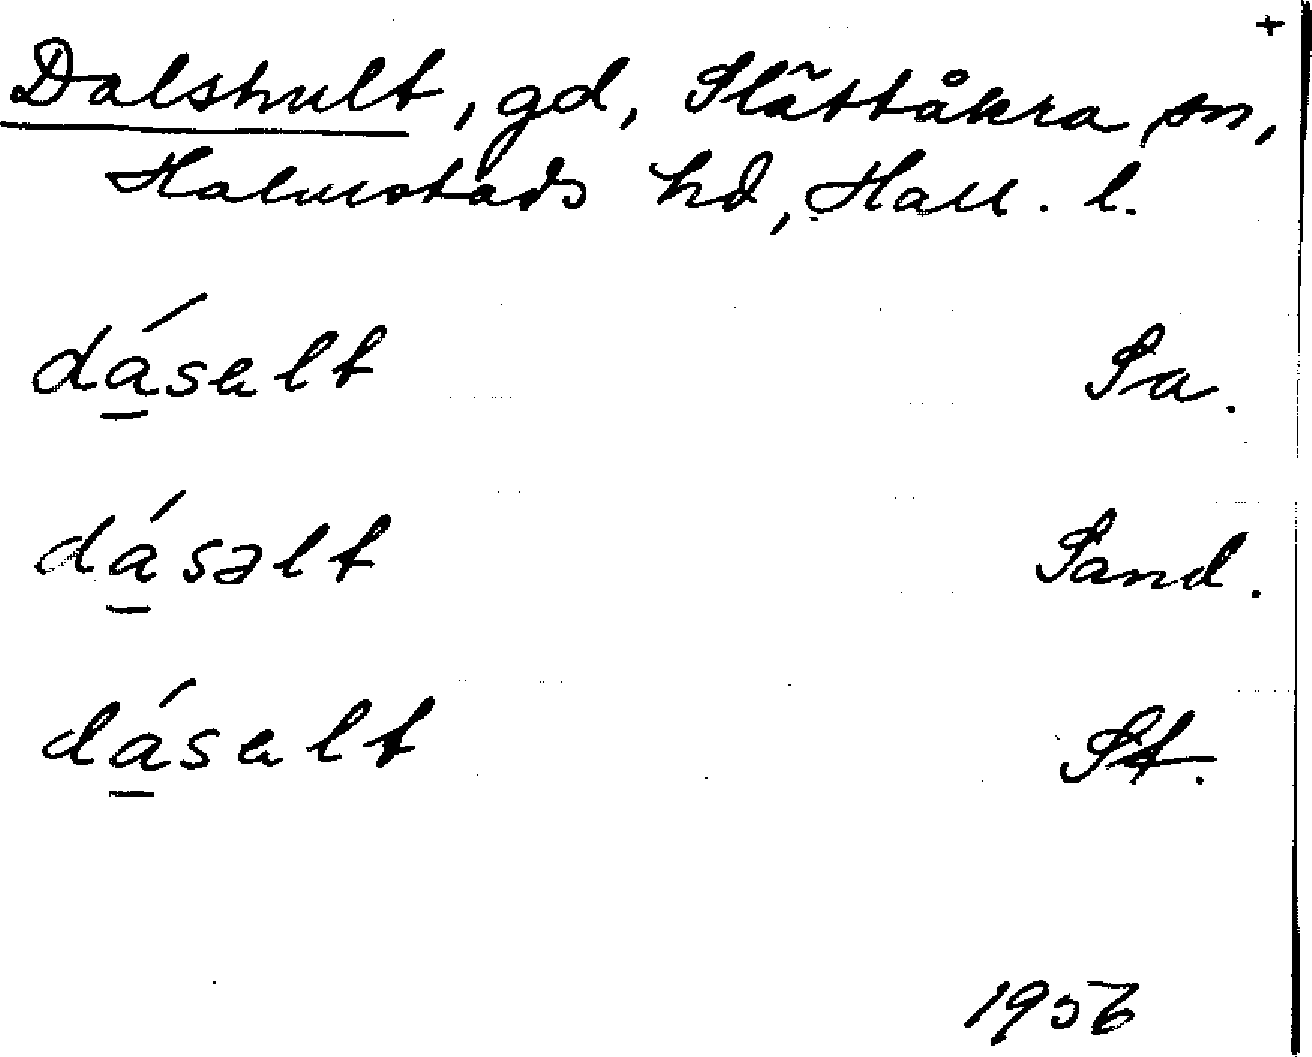 +
Dalshult, gd, Slättåkra sn,
Halmstads hd, Hall. l.
dá̱salt Sa.
dá̱səlt Sand.
dá̱salt St.
1956